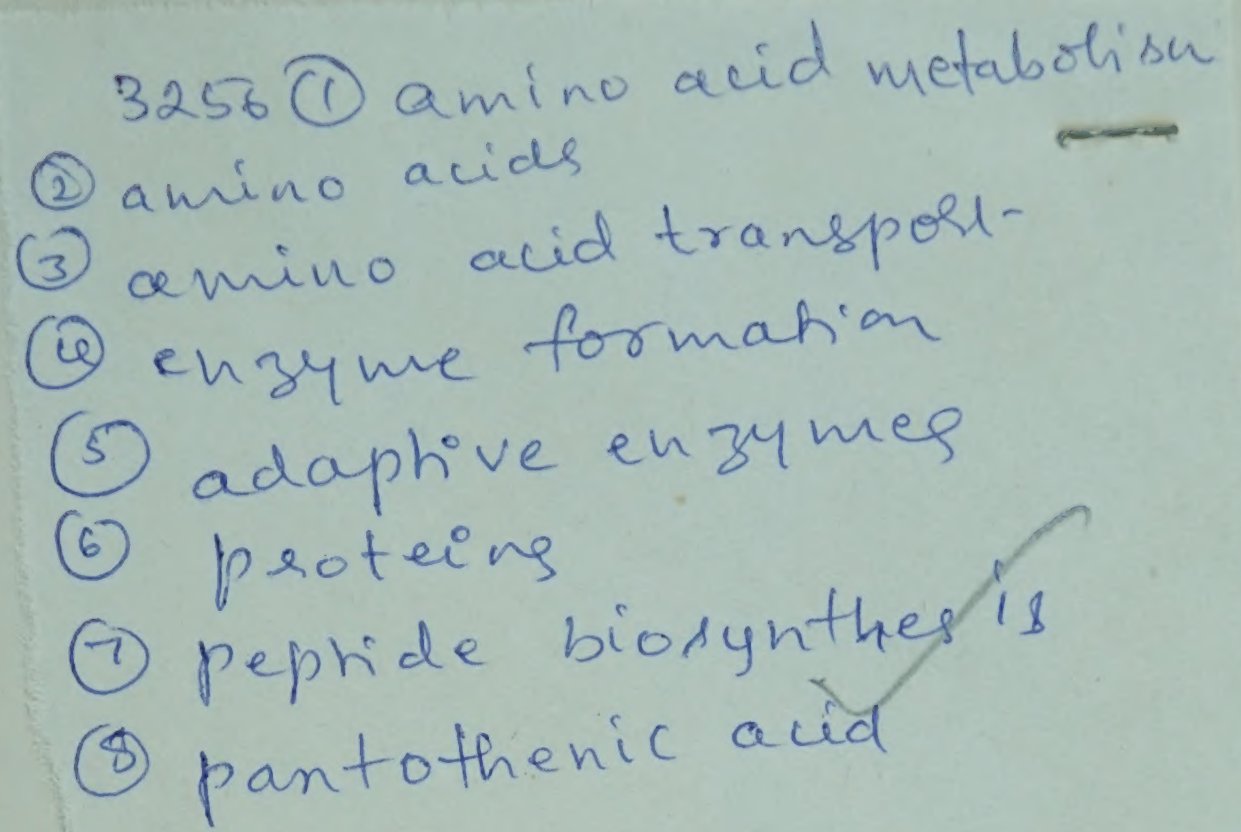 3256 ① amino acid metabolism
② amino acids
③ amino acid transport
④ enzyme formation
⑤ adaptive enzymes
⑥ proteins
⑦ peptide biosynthesis
⑧ pantothenic acid